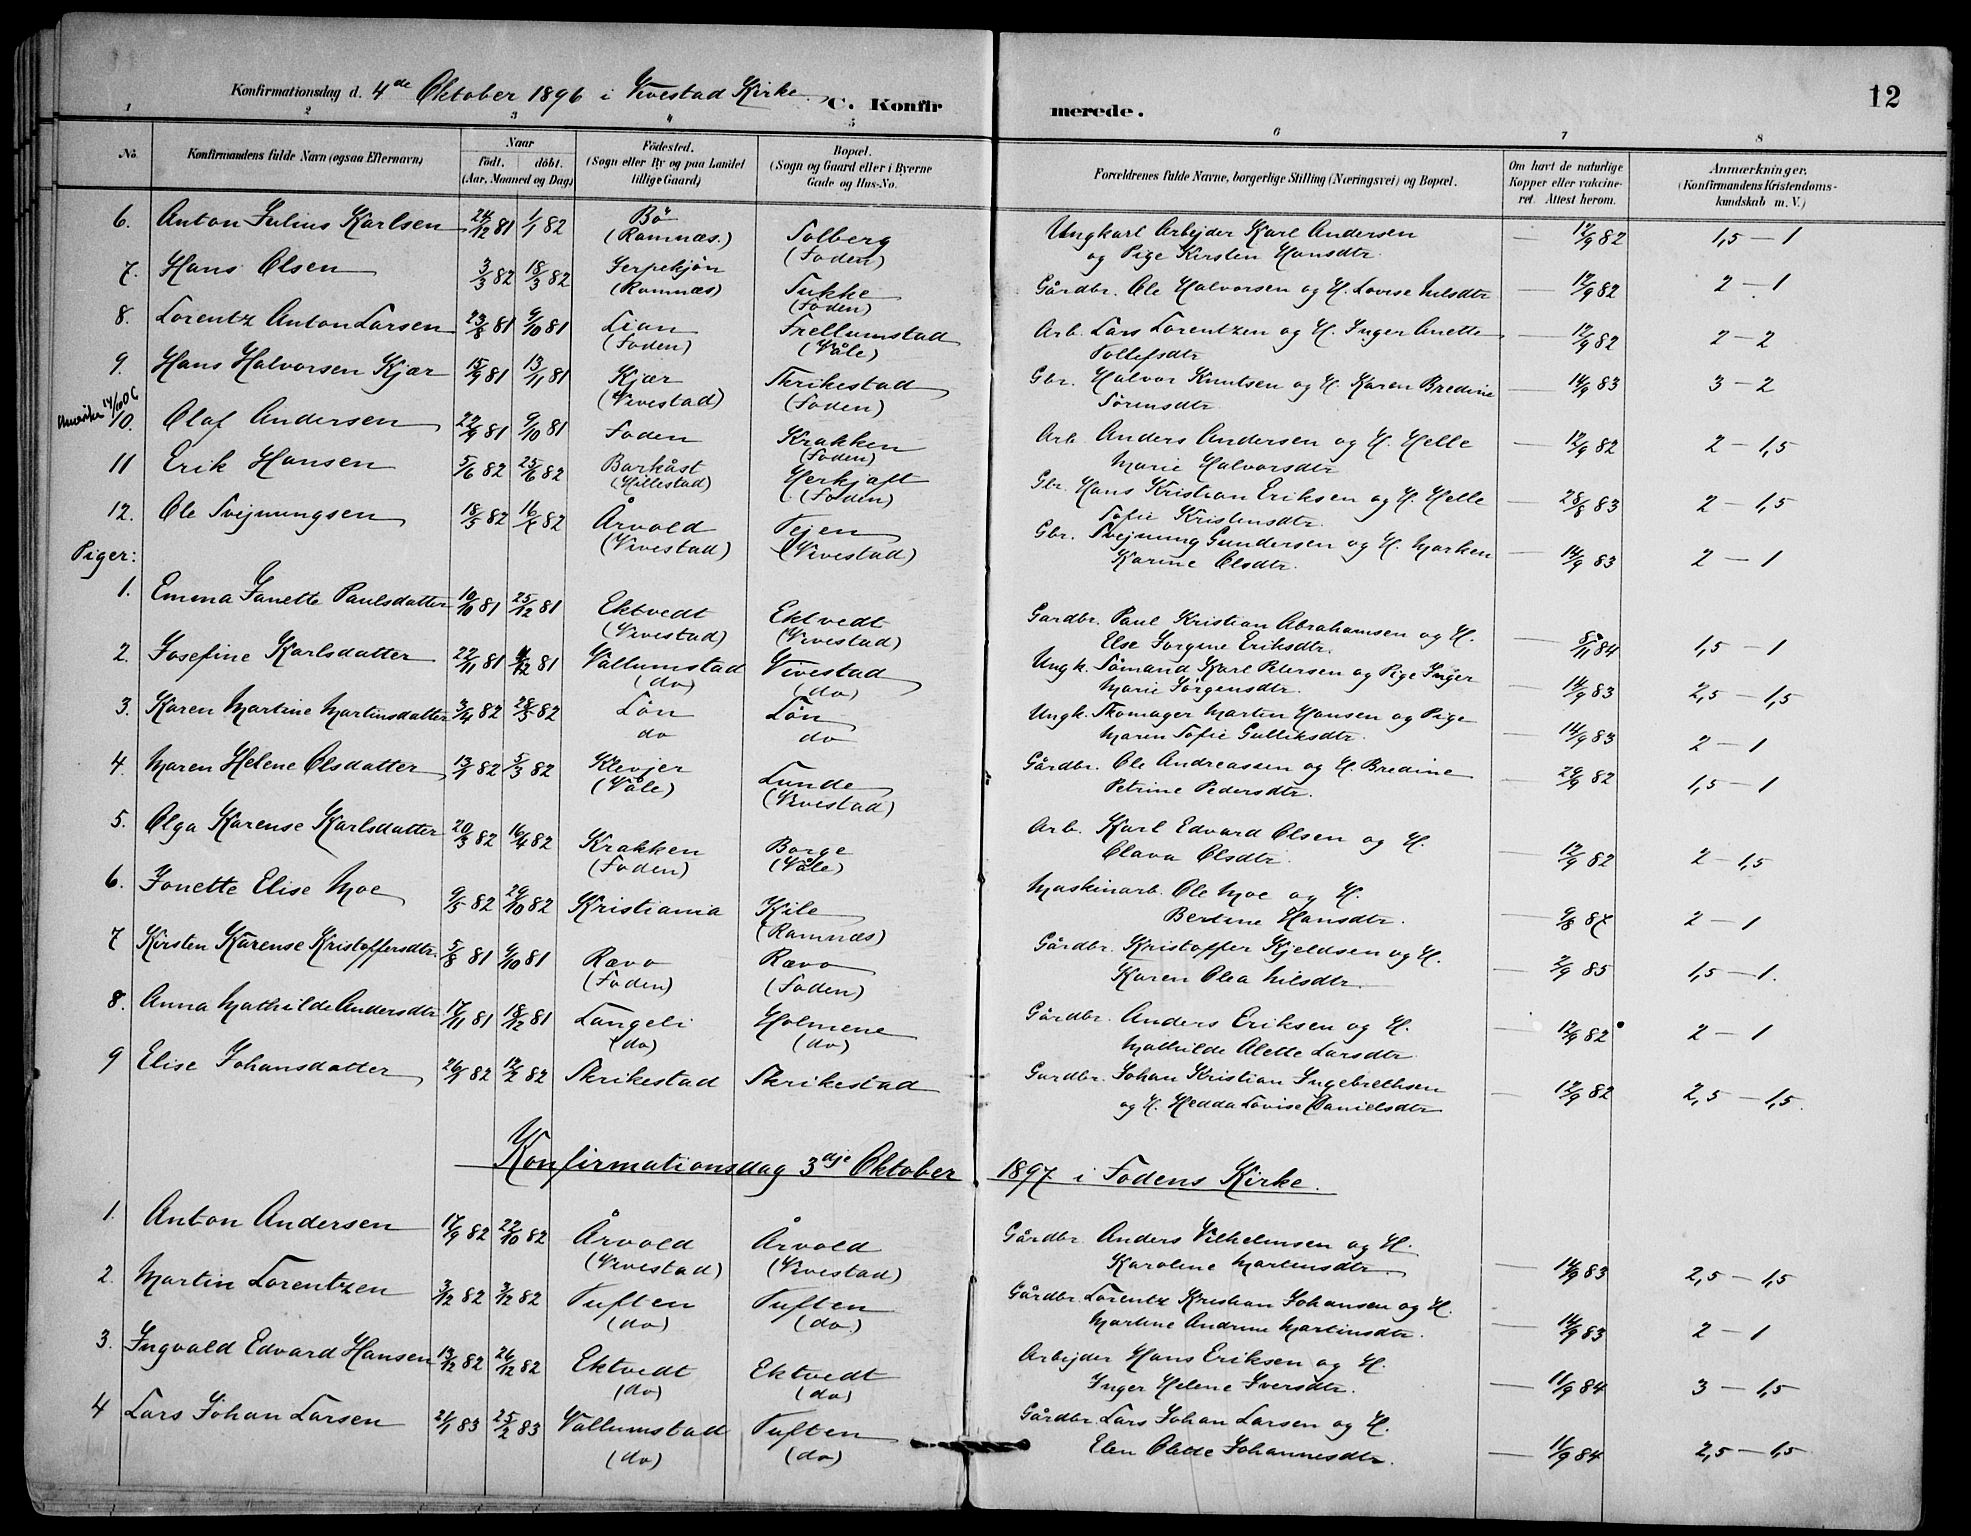 Konfirmationsdag d. 4de Oktober 1896 i Vivestad Kirke. C. Konfirmerede. 12
1 2 3 4 5 6 7 8
No. Konfirmandens fulde Navn (ogsaa Efternavn) Naar født. døbt. (Aar, Maaned og Dag) Fødested. (Sogn eller By og paa Landet tillige Gaard) Bopæl. (Sogn og Gaard eller i Byerne Gade og Hus-No. Forældrenes fulde Navne, borgerlige Stilling (Næringsvei) og Bopæl. Om havt de naturlige Kopper eller vakcineret. Attest herom. Anmærkninger. (Konfirmandens Kristendomskundskab m. V.)
6. Anton Julius Karlsen 24/12 81 1/1 82 Bö (Ramnæs.) Solberg (Foden) Ungkarl Arbejder Karl Andersen og Pige Kirsten Hansdtr. — 12/9 82 1,5 — 1
7. Hans Olsen 3/3 82 18/3 82 Serpekjön (Ramnæs) Tukke (Foden) Gårdbr. Ole Halvorsen og H. Lovise Nilsdtr — 12/9 82 2 — 1
8. Lorentz Anton Larsen 23/8 81 9/10 81 Lian (Foden) Trellumstad (Våle) Arb. Lars Lorentzen og H. Inger Anette Tollefsdtr — 12/9 82 2 — 2
9. Hans Halvorsen Kjær 15/9 81 13/11 81 Kjær (Vivestad) Skrikestad (Foden) Gbr. Halvor Knutsen og H. Karen Bredine Sörensdtr — 14/9 83 3 — 2
10. Olaf Andersen 22/9 81 9/10 81 Foden Krakken (Foden) Arb. Anders Andersen og H. Helle Marie Halvorsdtr — 12/9 82 2 — 1,5
11 Erik Hansen 5/6 82 25/6 82 Barkåst (Hillestad) Herkjaft (Foden) Gbr. Hans Kristian Eriksen og H. Helle Sofie Kristensdtr. — 28/8 83 2 — 1,5
12. Ole Svejnungsen Årvold (Vivestad) Tejen (Vivestad) Gbr. Svejnung Gundersen og H. Marken Karine Olsdtr. — 14/9 83 2 — 1
Piger:
1. Emma Janette Paulsdatter 10/10 81 25/12 81 Ektvedt (Vivestad) Ektvedt (Vivestad) Gardbr. Paul Kristian Abrahamsen og H. Else Jorgine Eriksdtr. — 8/11 84 1,5 — 1
2. Josefine Karlsdatter 22/11 81 Vallumstad (do) Vivestad (do) Ungk. Sömand Karl Petersen og Pige Inger Marie Jörgensdtr. — 14/9 83 2,5 — 1,5
3. Karen Martine Martinsdatter 3/4 82 28/5 82 Lön do Lön do Ungk. Skomager Martin Hansen og Pige Maren Sofie Gulliksdtr. — 14/9 83 2 — 1
4. Maren Helene Olsdatter 13/1 82 5/3 82 Klevjer (Våle) Lunde (Vivestad) Gårdbr. Ole Andreassen og H. Bredine Petrine Pedersdtr. — 29/9 82 1,5 — 1
5. Olga Karense Karlsdatter 20/3 82 16/4 82 Krakken (Foden) Borge (Våle) Arb. Karl Edvard Olsen og H. Olava Olsdtr. — 12/9 82 2 — 1,5
6. Jonette Elise Moe 9/5 82 29/10 82 Kristiania Kile (Ramnæs) Maskinarb. Ole Moe og H. Bertine Hansdtr. — 9/8 87 2 — 1
7 Kirsten Karense Kristoffersdtr. 5/8 81 9/10 81 Rævo (Foden) Rævo (Foden) Gårdbr. Kristoffer Kjeldsen og H. Karen Olea Nilsdtr. — 2/9 85 1,5 — 1.
8. Anna Mathilde Andersdtr 17/11 81 18/12 81 Langeli (do) Holmene (do) Gårdbr. Anders Eriksen og H. Mathilde Alette Larsdtr — 12/9 82 2 — 1
9 Elise Johansdatter 26/1 82 12/2 82 Skrikestad Skrikestad Gardbr. Johan Kristian Ingebrethsen og H. Hedda Lovise Danielsdtr — 12/9 82 2,5 — 1,5.
Konfirmationsdag 3dje Oktober 1897 i Fodens Kirke.
1. Anton Andersen 17/9 82 22/10 82 Årvold (Vivestad) Årvold (Vivestad) Gårdbr. Anders Vilhelmsen og H. Karoline Martinsdtr. — 14/9 83 2,5 — 1,5
2. Martin Lorentzen 3/12 82 Tuften (do) Tuften (do.) Gårdbr. Lorentz Kristian Johansen og H. Martine Andrine Martinsdtr. — 14/9 83 2 — 1
3. Ingvald Edvard Hansen 13/12 82 26/12 82 Ektvedt (do) Ektvedt (do) Arbejder Hans Eriksen og H. Inger Helene Iversdtr. — 11/9 84 3 — 1,5
4 Lars Johan Larsen 21/1 83 25/2 83 Vallumstad (do) Tuften (do) Gårdbr. Lars Johan Larsen og H. Elen Olette Johannesdtr. — 11/9 84 2,5 — 1,5